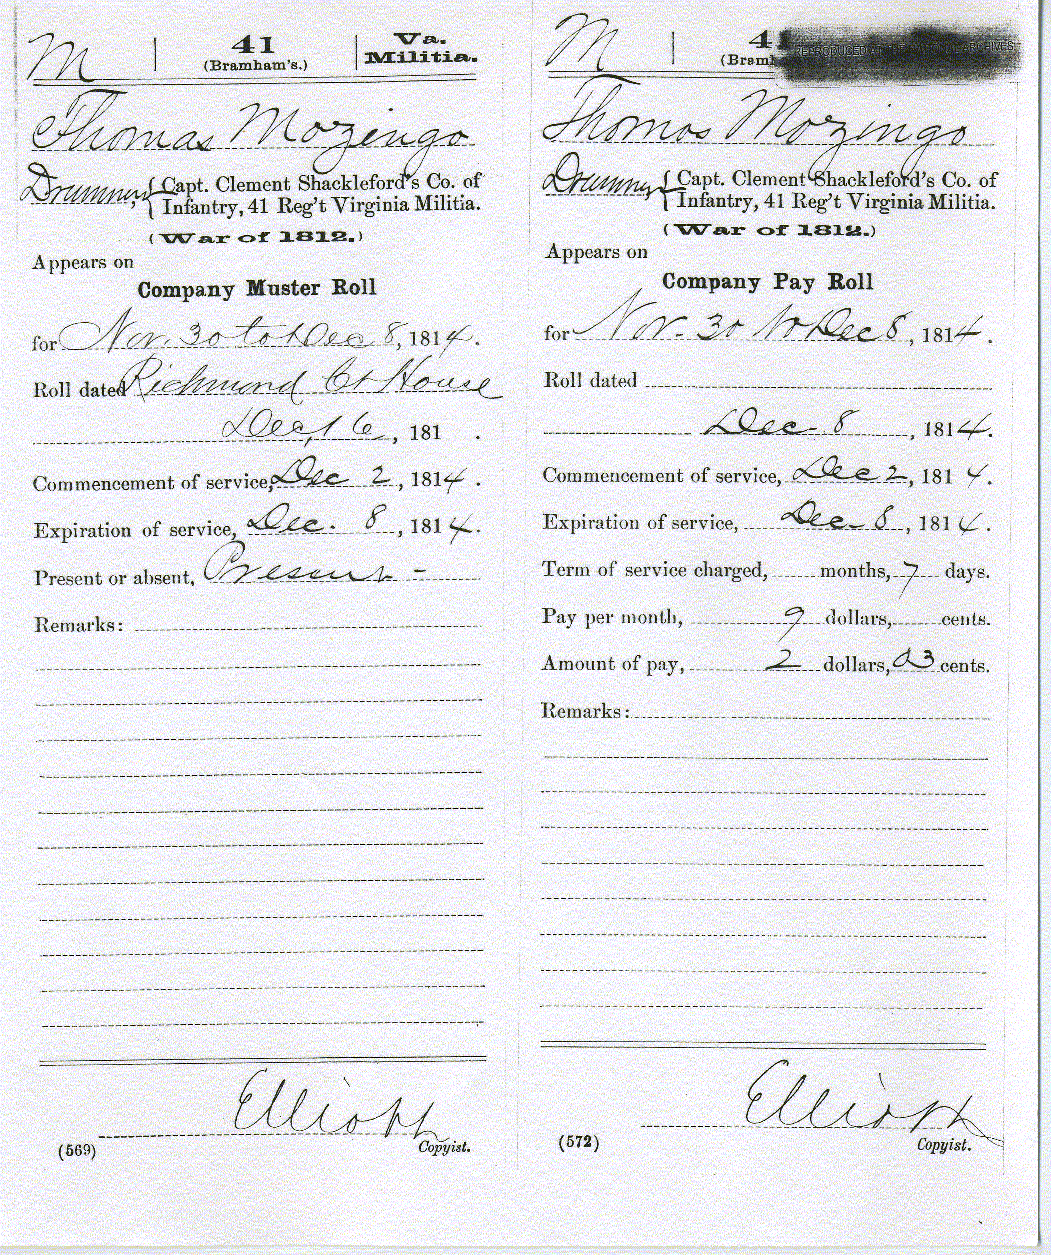 M
41
(Bramham's.)
Va.
Militia.
Thomas Mozingo
Drummer, { Capt. Clement Shackleford's Co. of
Infantry, 41 Reg't Virginia Militia.
(War of 1812.)
Appears on
Company Muster Roll
for Nov. 30 to Dec 8, 1814.
Roll dated Richmond Ct House
Dec, 16, 181 .
Commencement of service, Dec 2, 1814.
Expiration of service, Dec. 8, 1814.
Present or absent, Present -
Remarks:
Elliott
(569)
Copyist.
M
41
Thomas Mozingo
Drummer { Capt. Clement Shackleford's Co. of
Infantry, 41 Reg't Virginia Militia.
(War of 1812.)
Appears on
Company Pay Roll
for Nov. 30 to Dec 8, 1814.
Roll dated
Dec. 8, 1814.
Commencement of service, Dec 2, 1814.
Expiration of service, Dec. 8, 1814.
Term of service charged, months, 7 days.
Pay per month, 9 dollars, cents.
Amount of pay, 2 dollars, 03 cents.
Remarks:
Elliott
(572)
Copyist.